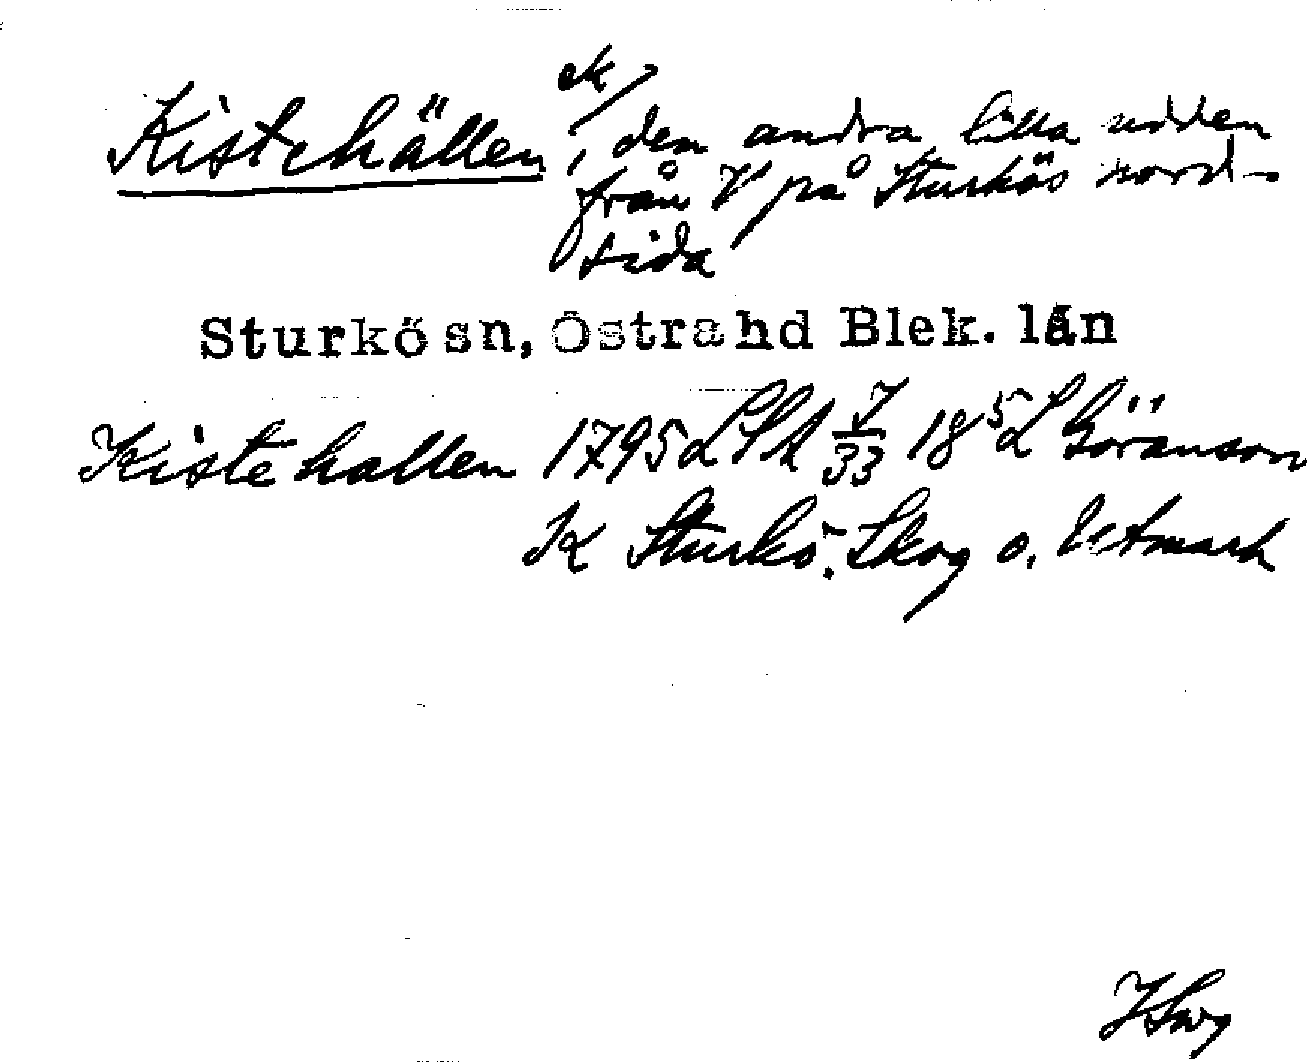 ek
Kistehällen, den andra lilla udden
från V på Sturkös nord-
sida
Sturkö sn, Östra hd Blek. län
Kistehallen 1795 LSA 7/33 18 5 L Göranson
K Sturkö. Skog o. Utmark